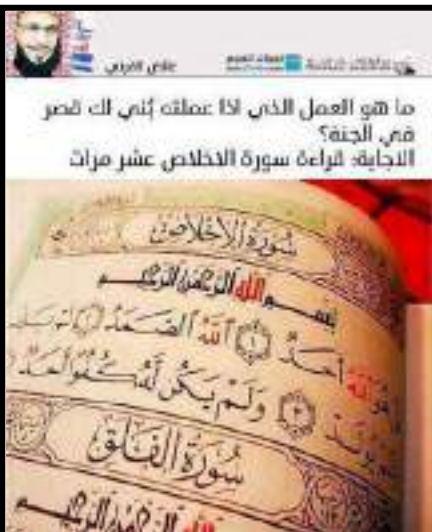 علي العربي
ما هو العمل الذي اذا عملته بُني لك قصر
في الجنة؟
الاجابة: قراءة سورة الاخلاص عشر مرات
سُورَةُ الْإِخْلَاصِ
بِسْمِ اللَّهِ الرَّحْمَٰنِ الرَّحِيمِ
هُوَ اللَّهُ أَحَدٌ ۝١ اللَّهُ الصَّمَدُ ۝٢ لَمْ يَلِدْ
يُولَدْ ۝٣ وَلَمْ يَكُن لَّهُ كُفُوًا أَحَدٌ
سُورَةُ الْفَلَقِ
اللَّهِ الرَّحْمَٰنِ الرَّحِيمِ